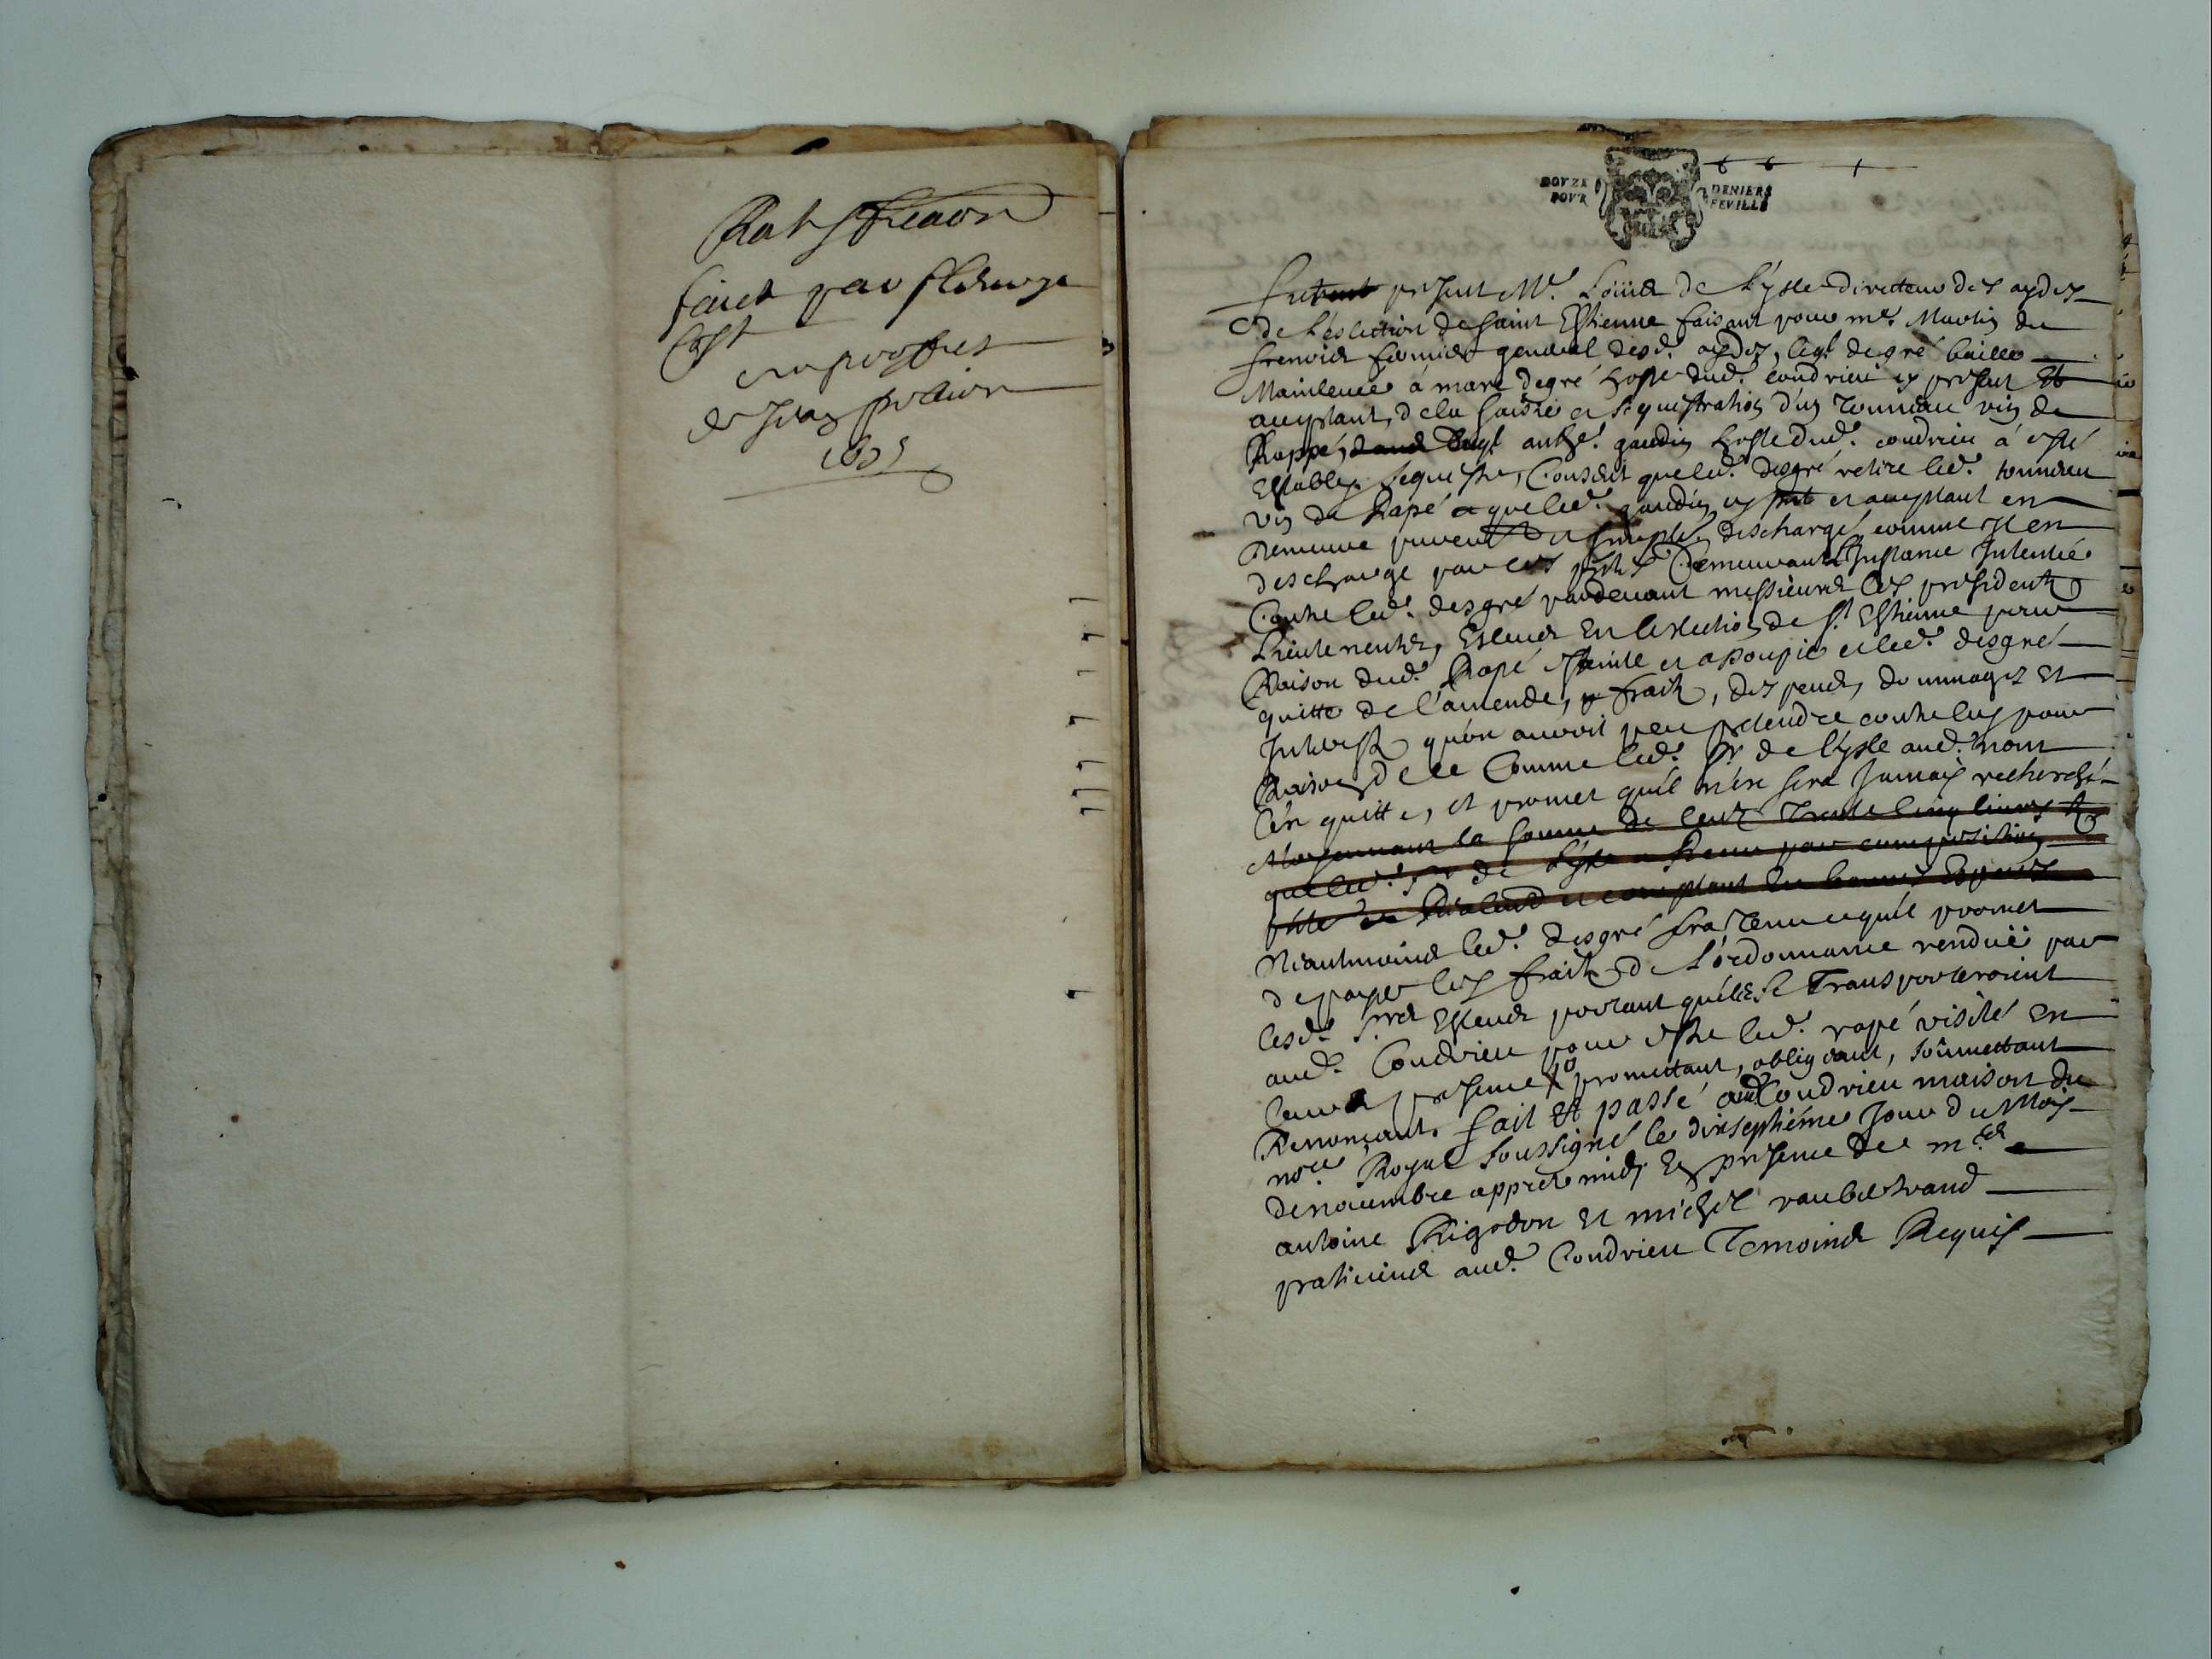 Ratiffication
faict par
Cost
au proffict
de Jean
1691
DOVZE DENIERS
POVR FEVILLE
6 6 1
Fut present Mr. Loüis de L'ysle directeur des aydes
de L'eslection de Saint Estienne faisant pour me. Martin du
frenoir fermier general desd. aydes, leql. de gré baille
Mainlevée à marc degré hoste dud. condrieu cy present et
acceptant, de la saisie et sequestration d'un tonneau vin de
Rappé, dont anthe. gaudin hoste dud. condrieu à esté
Estably sequestre, Consent que led. desgré retire led. tonneau
vin de Rapé et que led. gaudin cy pnt et acceptant en
demeure purement et simplemt. deschargé comme il en
descharge par ces pntes Demeurant l'Instance Intentée
Contre led. desgré pardevant messieurs les presidentz
Lieutenentz, Esleus En l'eslection de St. Estienne pour
Raison dud. Rapé esteinte et asoupie et led. desgré
quitte de l'amende, fraitz, despends, dommages et
Interestz qu'on auroit peu pretendre contre luy pour
Raison de ce Comme led. Sr. de l'ysle aud. nom
l'en quitte, et promet qu'il n'en sera Jamais recherché
Moyennant la somme de cent Trente Cinq livres
que led. Sr. de l'ysle a Receu par composition
et comptant En bonnes Especes
Neantmoins led. desgré sera Tenu cequ'il promet
de payer les fraitz de L'ordonnance renduë par
lesd. Srs. Esleus portant qu'ilz se Transporteroient
aud. Condrieu pour estre led. rapé visité en
leurs presence promettant, obligeant, soûmettant
Renonçant, fait et passé aud. Condrieu maison du
nore. Royal soussigné le dixseptiéme Jour du Mois
de novembre appres midy En presence de me.
antoine Rigodon et michel vaubertrand
praticiens aud. Condrieu Temoins Requis